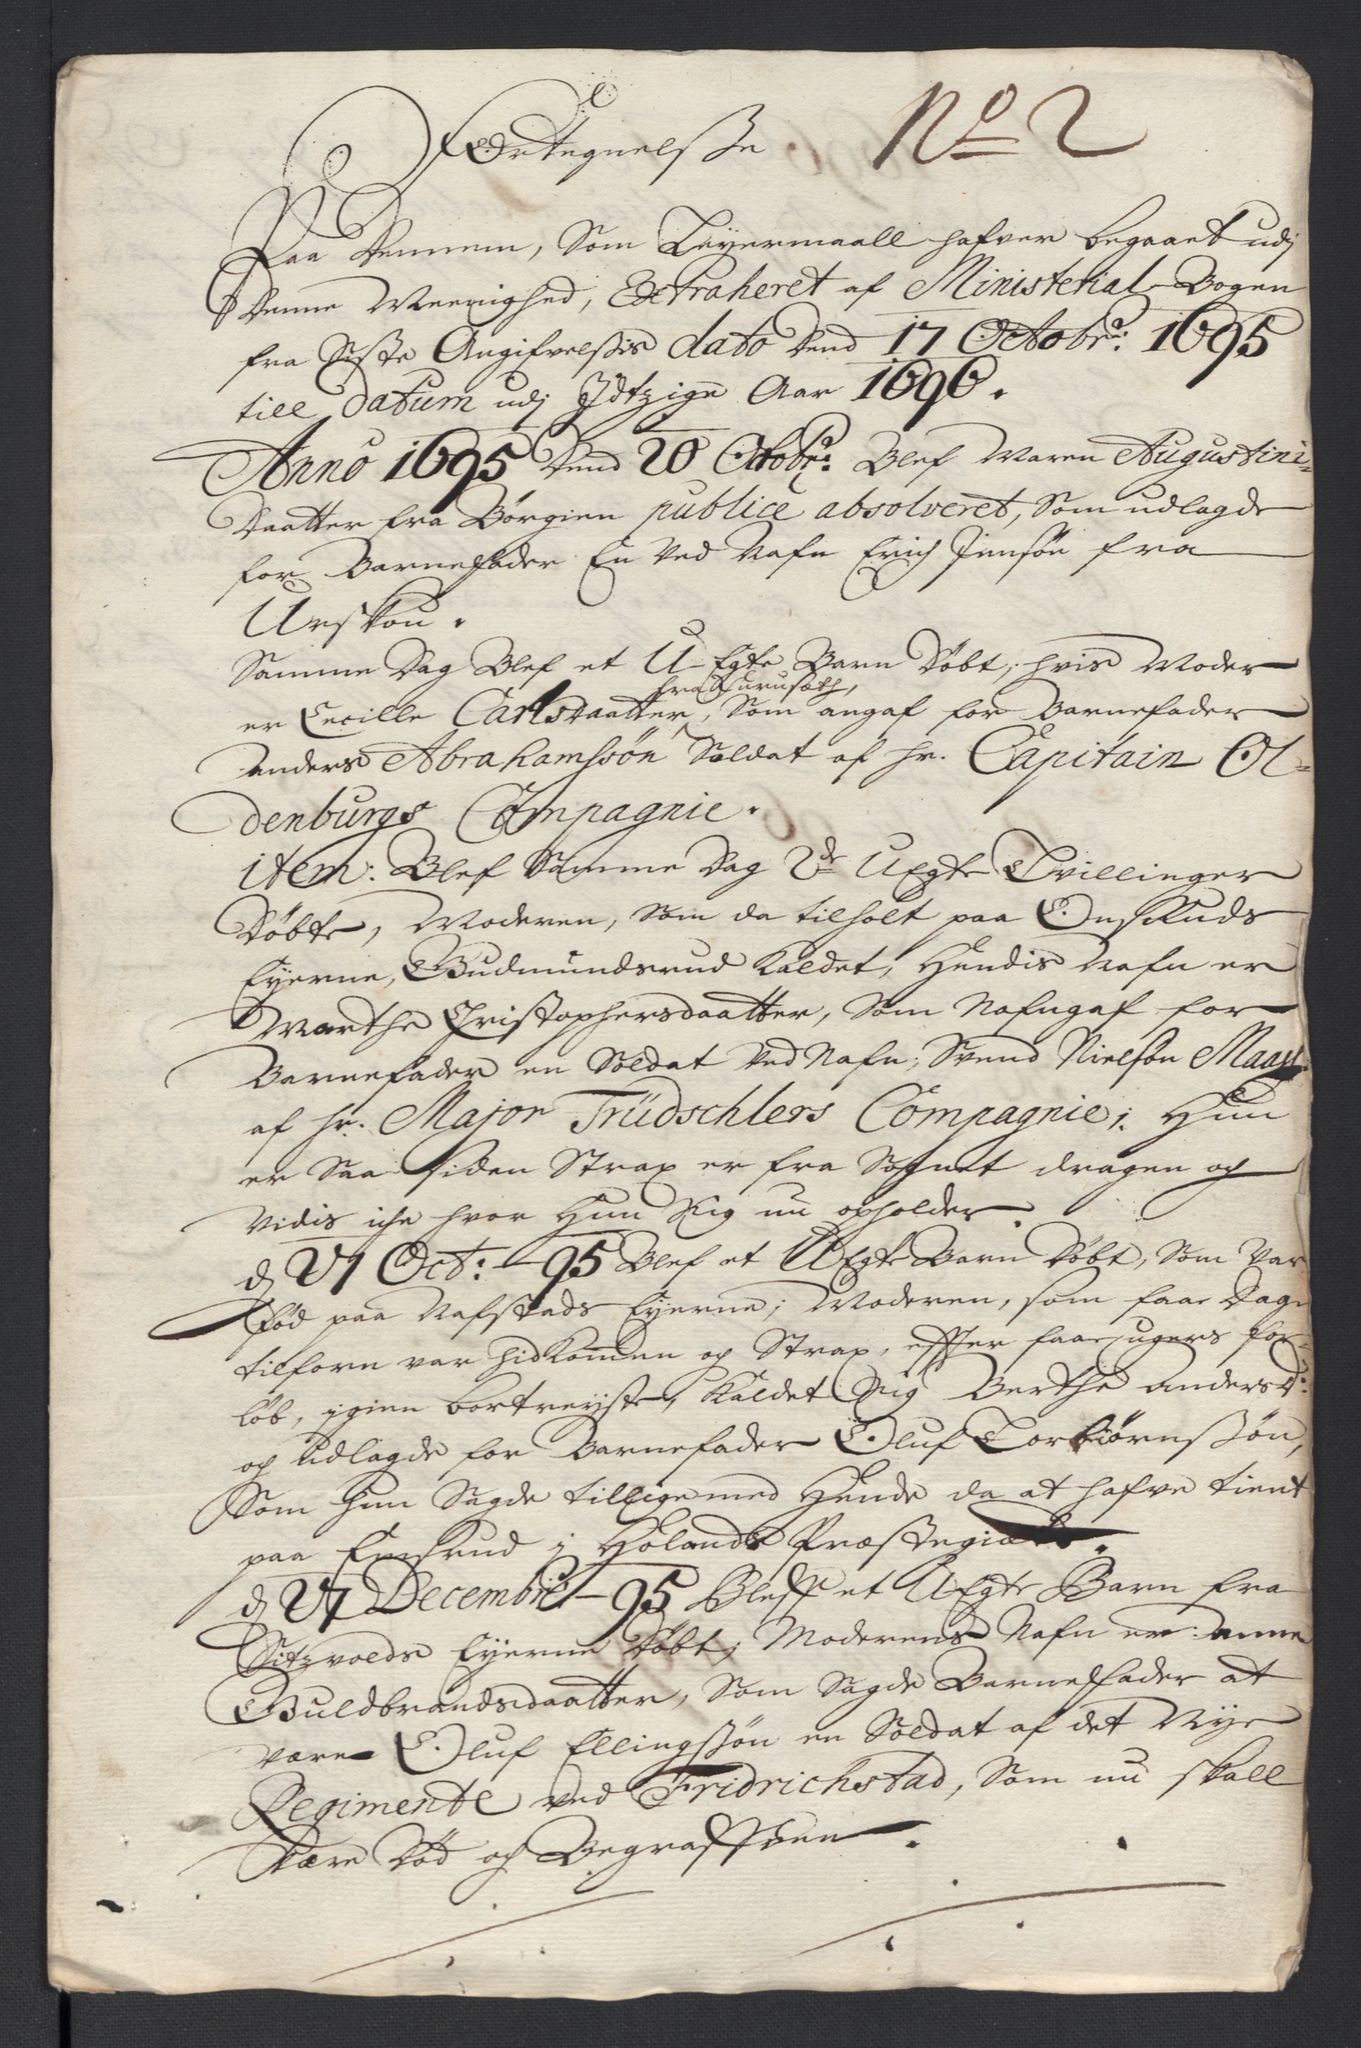 Fortegnelsße No 2
Paa Dennem, Som Leyermaall hafver begaaet udj
Denne Meenighed, Extraheret af Ministerial-Bogen
fra Siste Angifvelsßis dato Dend 17 Octobr: 1695
till datum udj Jdtzige Aar 1696.
Anno 1695 Dend 20 Octobr: Blef Maren Augustini-
Daatter fra Børgien publice absolveret, Som udlagde
for Barnefader En Ved Nafn Erich Jensøn fra
Urskou.
Samme Dag Blef et U-Egte Barn Døbt, hvis Moder
er Cecille Carlsdaatter, Som angaf for Barnefader
Anders Abrahamsøn Soldat af hr. Capitain Ol-
denburgs Compagnie.
item: Blef Samme Dag 2de UEgte Tvillinger
Døbte, Moderen, Som da tilholt paa Onskuds
Eyerne, Gudmundsrud kaldet, Hendis Nafn er
Marthe Christophersdaatter, Som Nafngaf for
Barnefader en Soldat Ved Nafn, Svend Nielsøn
af hr. Major Trüdschlers Compagnie; Hun
er Saa siden Strax er fra Sognet dragen og
Vidis iche hvor Hun Sig nu opholder.
d 27 Oct: -95 Blef et UEgte Barn Døbt, Som Var
fød paa Nafstads Eyerne; Moderen, som faae Dage
tilforn var hidkommen og Strax, effter faae ugers for-
løb, igien bortreyste, kaldet Sig Berthe AndersD:
og udlagde for Barnefader Oluf Torbiørnsßøn,
Som hun Sagde tillige med Hende da at hafve tient
paa i Hølands Præstegield.
d 27 Decembr -95 Bleff et UEgte Barn fra
Sitzvolds Eyerne Døbt; Moderens Nafn er Anne
Guldbrandsdaatter, Som Sagde Barnefader at
være Oluf Ellingsßøn en Soldat af det Nye
Regimente ved Fridrichstad, Som nu skall
Være Død og Begraffven.